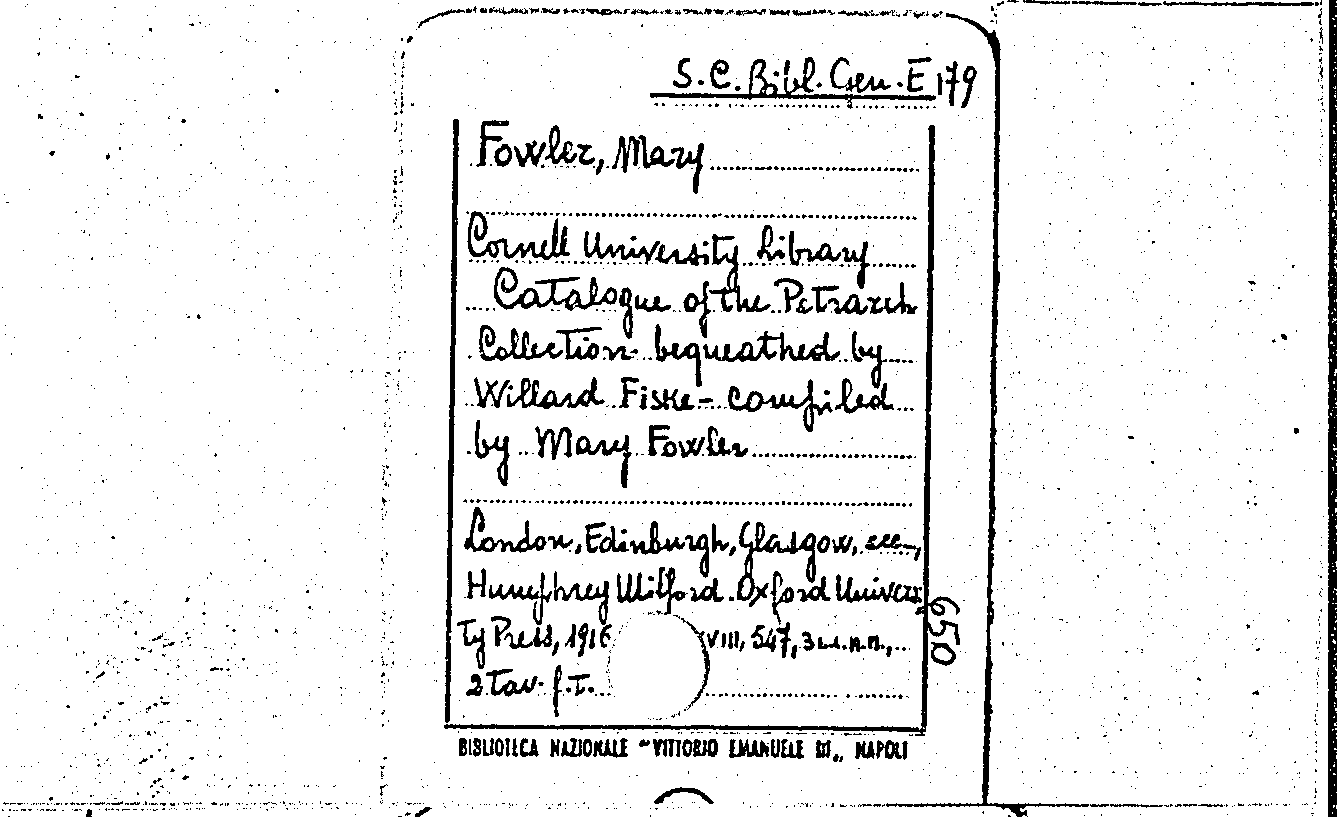 S.C. Bibl. Gen. E 179
Fowler, Mary
Cornell University Library
Catalogue of the Petrarch
Collection bequeathed by
Willard Fiske - compiled
by Mary Fowler
London, Edinburgh, Glasgow, ecc.,
Humphrey Milford. Oxford Universi
ty Press, 1916 VIII, 547, 3 s.n.n.,
2 Tav. f.t.
650
BIBLIOTECA NAZIONALE "VITTORIO EMANUELE III„ NAPOLI